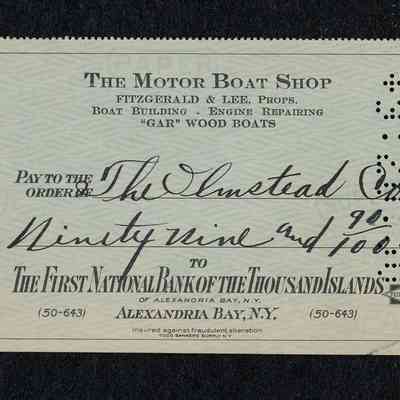 THE MOTOR BOAT SHOP
FITZGERALD & LEE, PROPS.
BOAT BUILDING - ENGINE REPAIRING
"GAR" WOOD BOATS
PAY TO THE
ORDER OF The Olmstead
Ninety nine and 90/100
TO
THE FIRST NATIONAL BANK OF THE THOUSAND ISLANDS
OF ALEXANDRIA BAY, N.Y.
(50-643) ALEXANDRIA BAY, N.Y. (50-643)
Insured against fraudulent alteration
TODD BANKERS SUPPLY N.Y.